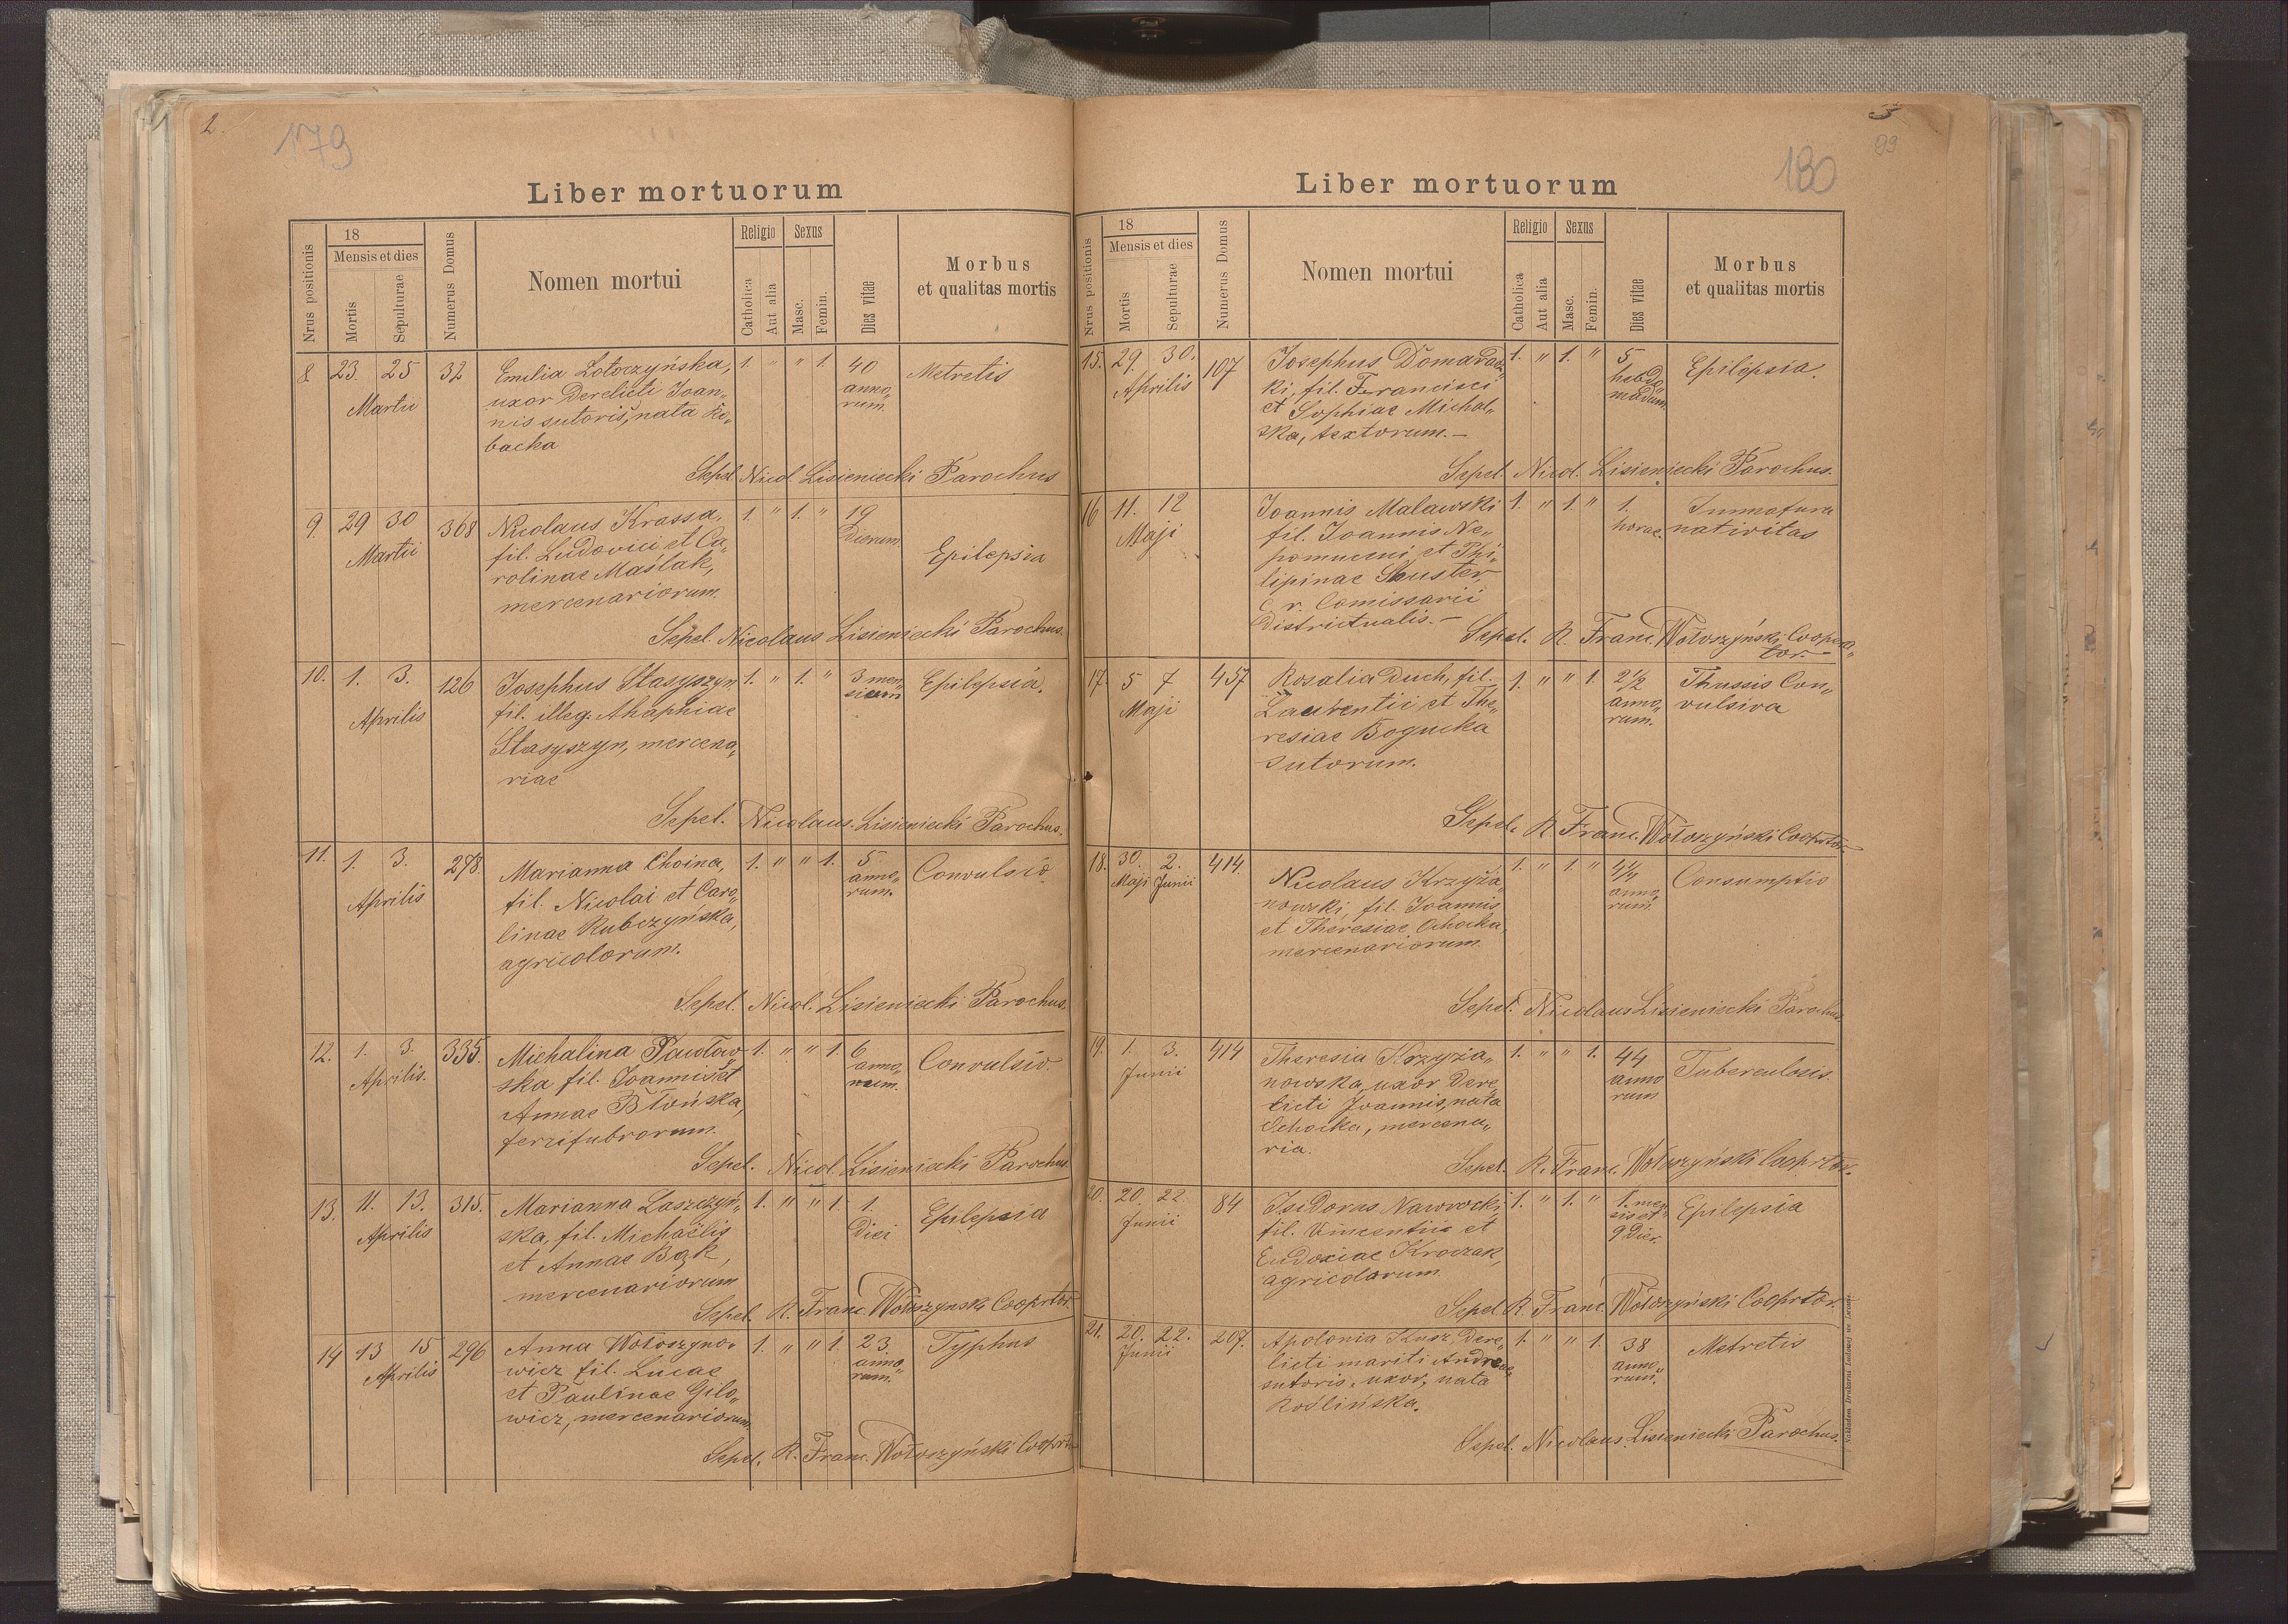 2.
179
Liber mortuorum
Nrus positionis
18
Mensis et dies
Mortis
Sepulturae
Numerus Domus
Nomen mortui
Religio
Catholica
Aut alia
Sexus
Masc.
Femin.
Dies vitae
Morbus
et qualitas mortis
8 23 25 32 Emilia Zotoczyńska, 1. " " 1. 40 Metretis
Martii uxor derelicti Joan„ anno„
nis sutoris, nata Ro„ rum.
backa
Sepel. Nicol. Lisieniecki Parochus
9. 29 30 368 Nicolaus Krassa, 1. " 1. " 19 Epilepsia
Martii fil. Ludovici et Ca„ dierum.
rolinae Maślak,
mercenariorum.
Sepel. Nicolaus Lisieniecki Parochus.
10. 1. 3. 126 Josephus Stasyszyn 1. " 1. " 3 men„ Epilepsia.
Aprilis fil. illeg. Ahaphiae sium
Stasyszyn, mercena„
riae
Sepel. Nicolaus Lisieniecki Parochus.
11. 1. 3. 278. Marianna Choina, 1. " " 1. 5 Convulsio.
Aprilis fil. Nicolai et Caro„ anno„
linae Rubczyńska, rum.
agricolorum.
Sepel. Nicol. Lisieniecki Parochus.
12. 1. 3. 335. Michalina Pawłow„ 1. " " 1. 6 Convulsio.
Aprilis. ska fil. Joannis et anno„
Annae Błońska, rum.
ferrifabrorum.
Sepel. Nicol. Lisieniecki Parochus.
13. 11. 13. 315. Marianna Laszczyń„ 1. " " 1. 1. Epilepsia
Aprilis ska, fil. Michaëlis diei
et Annae Bąk,
mercenariorum
Sepel. R. Franc. Wołoszynski Cooprtor.
14 13 15 296 Anna Wołoszyno„ 1. " " 1. 23. Typhus
Aprilis wicz fil. Lucae anno„
et Paulinae Gilo„ rum.
wicz, mercenariorum.
Sepel. R. Franc. Wołoszyński
3
99
180
Liber mortuorum
Nrus positionis
18
Mensis et dies
Mortis
Sepulturae
Numerus Domus
Nomen mortui
Religio
Catholica
Aut alia
Sexus
Masc.
Femin.
Dies vitae
Morbus
et qualitas mortis
15. 29. 30. 107 Josephus Domaradz„ 1. " 1. " 5 Epilepsia.
Aprilis ki, fil. Francisci hebdo„
et Sophiae Michal„ madum.
ska, textorum.—
Sepel. Nicol. Lisieniecki Parochus.
16 11. 12 Joannis Malawski 1. " 1. " 1. Immatura
Maji fil. Joannis Ne„ horae. nativitas
pomuceni et Phi„
lipinae Shuster,
C. r. Comissarii
districtualis.—
Sepel. R. Franc. Wołoszyński Coopera„
tor.—
17. 5 7 457 Rosalia Duch, fil. 1. " " 1. 2½ Thussis Con„
Maji Laurentii et The„ anno„ vulsiva
resiae Bogucka rum.
sutorum.
Sepel. R. Franc. Wołoszyński Cooprtor.
18. 30. 2. 414. Nicolaus Krzyża„ 1. " 1. " Consumptio
Maji Junii nowski, fil. Joannis anno„
et Theresiae Ochocka, rum.
mercenariorum.
Sepel. Nicolaus Lisieniecki Parochus.
19. 1. 3. 414 Theresia Krzyża„ 1. " " 1. 44 Tuberculosis.
Junii nowska, uxor dere„ anno
licti Joannis, nata rum
Ochocka, mercena„
ria.
Sepel. R. Franc. Wołoszyński Cooprtor.
20. 20 22. 84 Isidorus Nawrocki, 1. " 1. " 1. men Epilepsia
Junii fil. Vincentii et sis et
Eudoxiae Kroczak, 9 dier.
agricolarum.
Sepel. R. Franc. Wołoszyński Cooprtor.
21. 20. 22. 207. Apolonia Kusz, dere„ 1. " " 1. 38 Metretis
Junii licti mariti Andreae, anno„
sutoris, uxor, nata rum.
Roślińska.
Sepel. Nicolaus Lisieniecki Parochus.